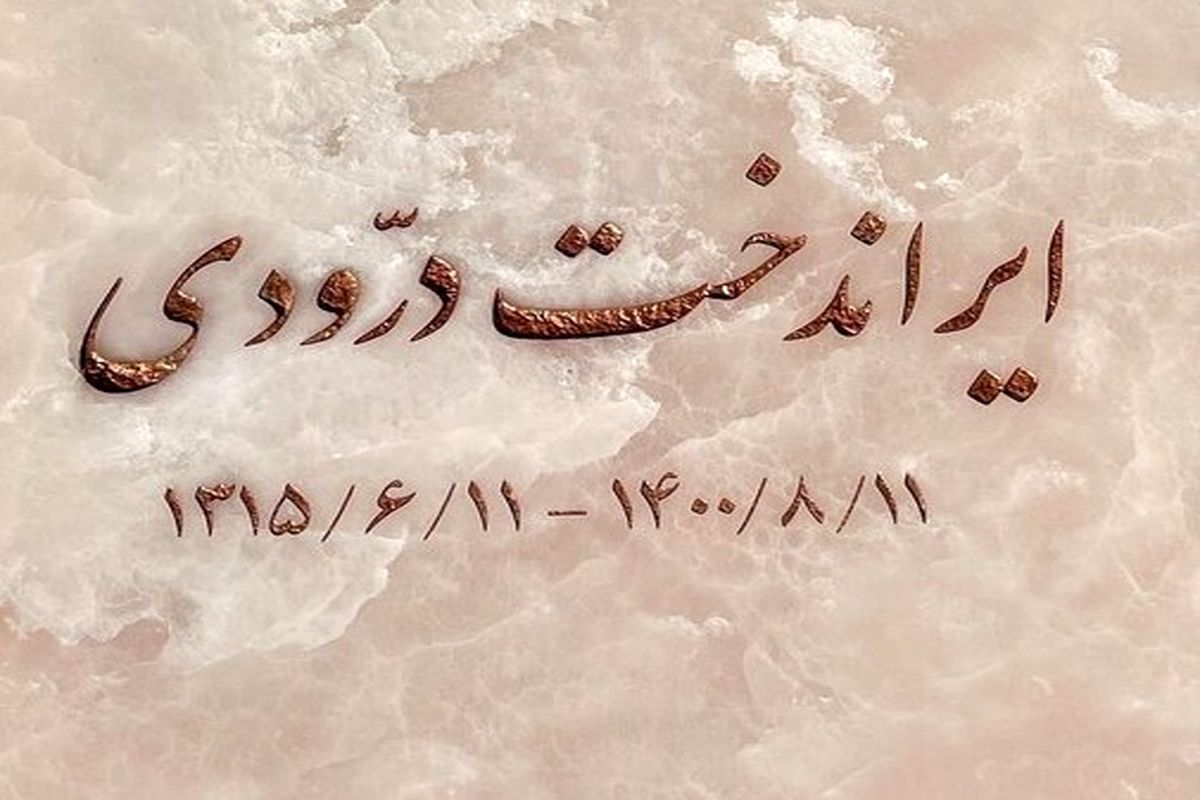 ایراندخت درّودی
۱۳۱۵/۶/۱۱ – ۱۴۰۰/۸/۱۱